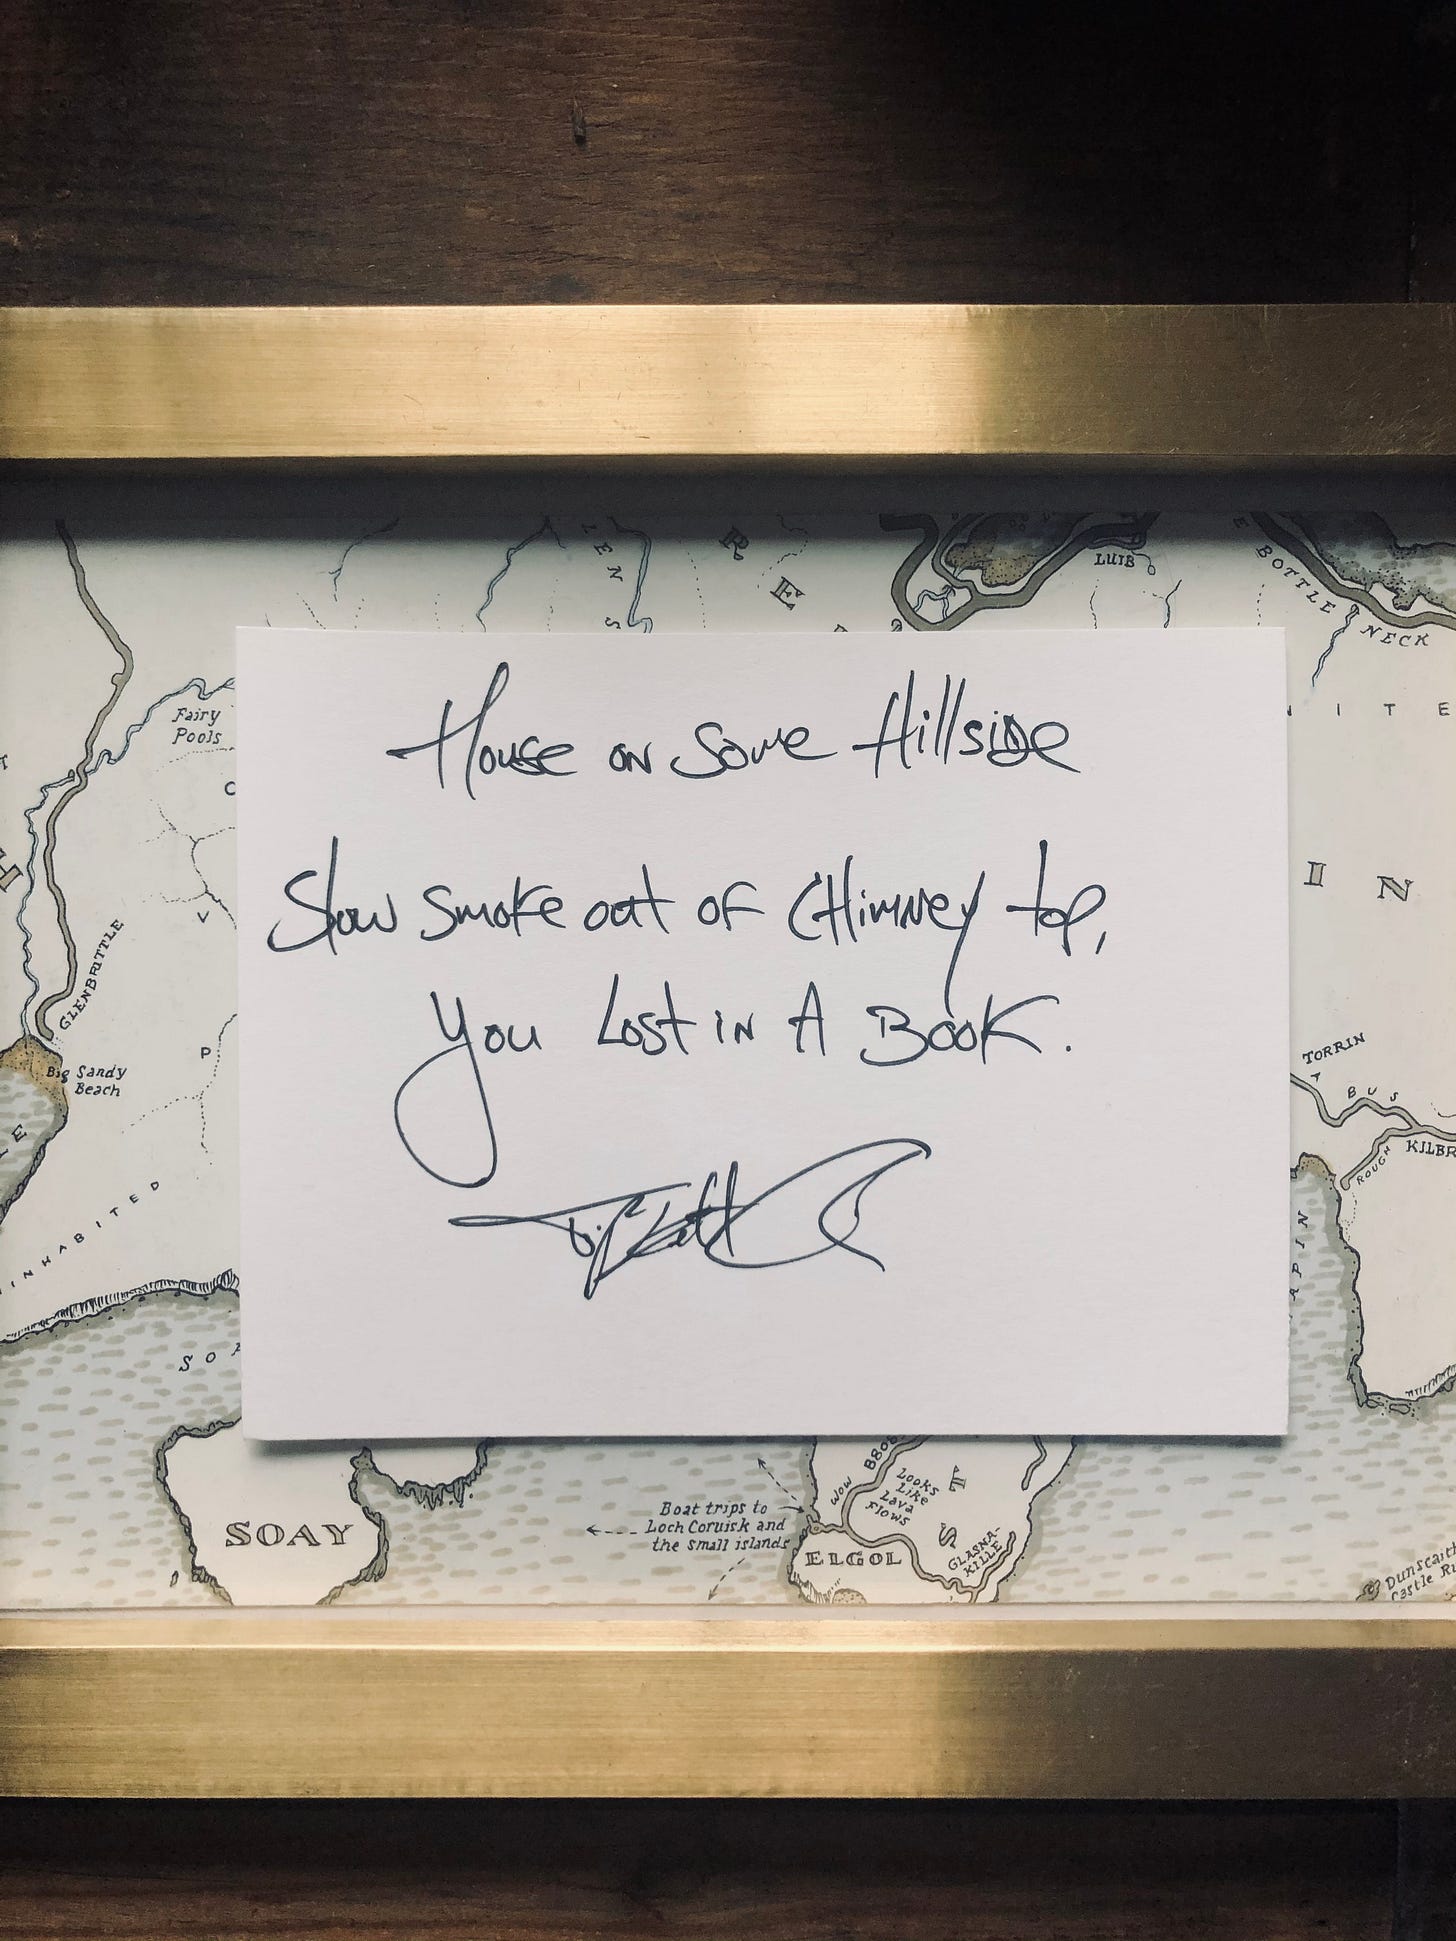 LENS
RE
LUIB
BOTTLE NECK
Fairy
Pools
NITE
House on some Hillside
Slow smoke out of Chimney top,
IN
GLENBRITTLE
You Lost in A Book.
Big Sandy
Beach
TORRIN
BUS
ROUGH
INHABITED
SO
Boat trips to
Loch Coruisk and
the small islands
WOW
Looks
Like
Lava
Flows
SOAY
ELGOL
GLASNA-
KILLE